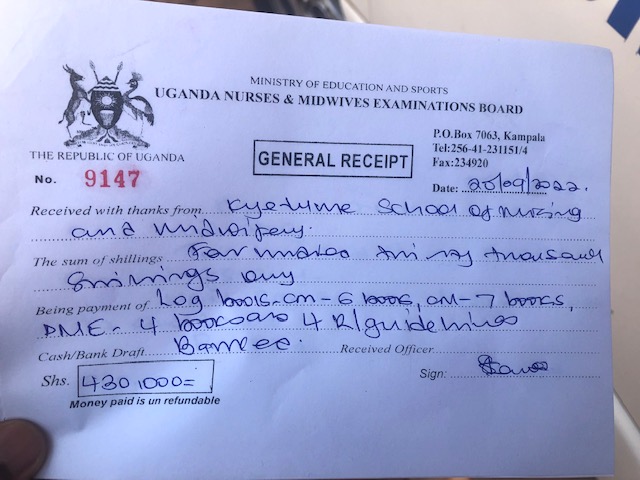 MINISTRY OF EDUCATION AND SPORTS
UGANDA NURSES & MIDWIVES EXAMINATIONS BOARD
P.O.Box 7063, Kampala
Tel:256-41-231151/4
Fax:234920
THE REPUBLIC OF UGANDA
GENERAL RECEIPT
No. 9147
Date: 20/09/2022.
Received with thanks from Kyetume School of nursing
and midwifery.
The sum of shillings Four thousand thirty thousand
Shillings only
Being payment of Log books-cm-6 books, cm-7 books,
DME-4 books and 4 R/guidelines
Cash/Bank Draft Banked. Received Officer
Shs. 430,000= Sign:
Money paid is un refundable